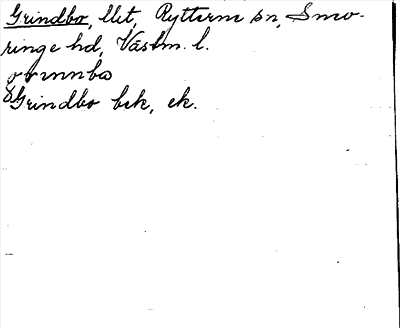 Grindbo, llet, Rytterne sn, Snev-
ringe hd, Västm. l.
Grindbo bck, ek.